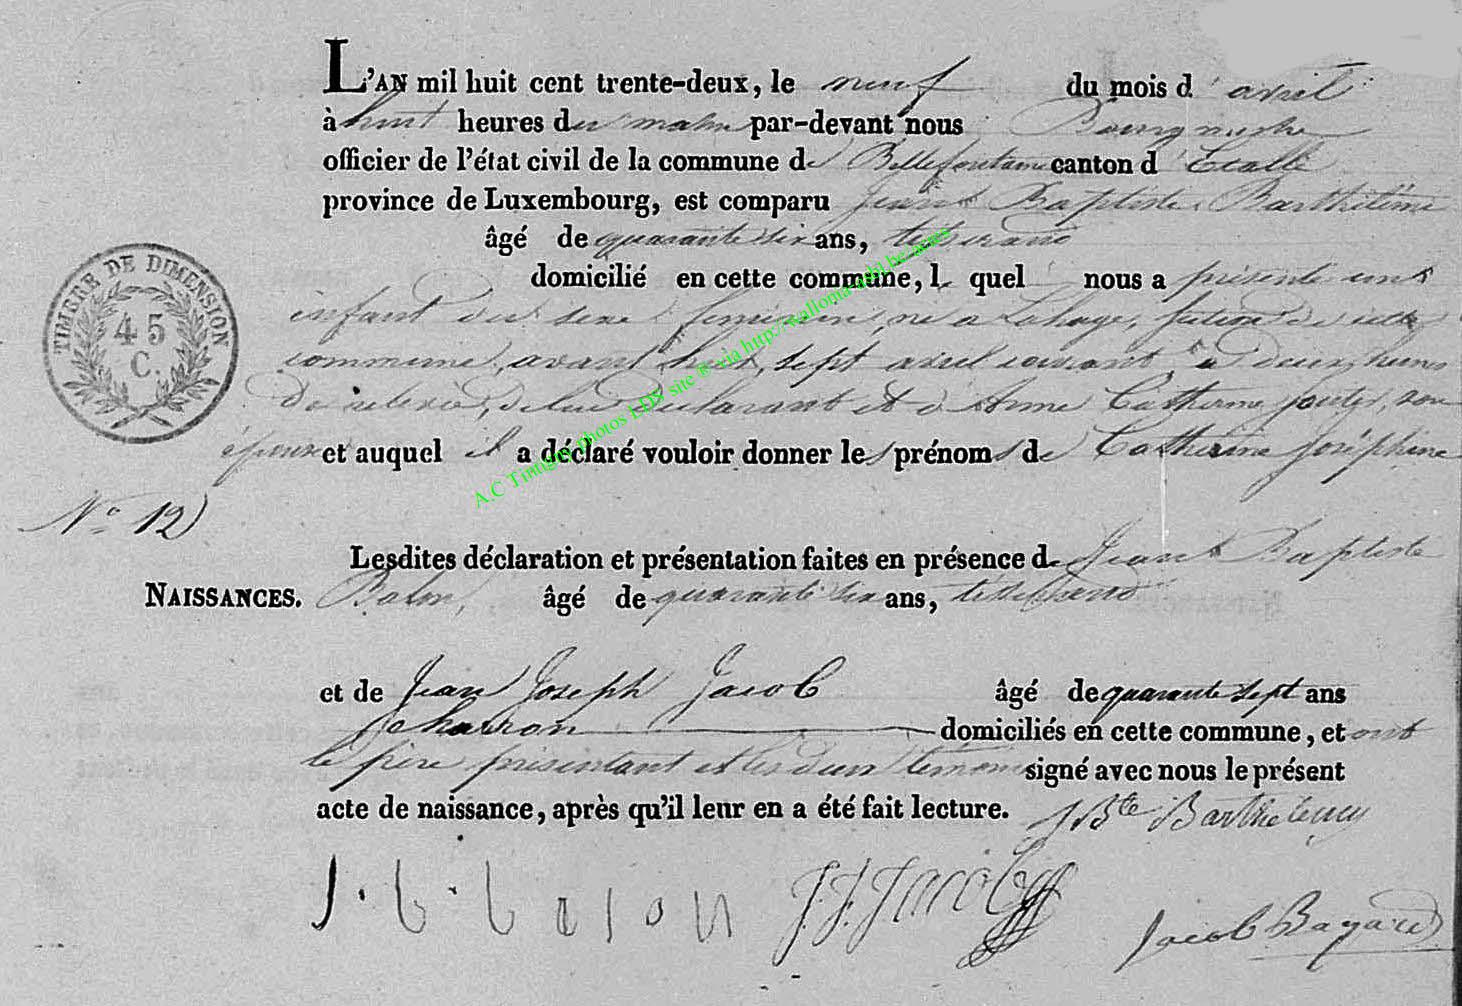 L'AN mil huit cent trente-deux, le neuf du mois d'avril
à huit heures du matin par-devant nous
officier de l'état civil de la commune de Bellefontaine canton d'Etalle
province de Luxembourg, est comparu Jean Baptiste Barthélémi
âgé de quarante six ans, tisserand
domicilié en cette commune, l quel nous a présenté un
enfant du sexe féminin, né a Lahage, section de cette
commune, avant hier, sept avril courant, a deux heures
de relevée, de lui déclarant et d'Anne Catherine, son
épouse et auquel il a déclaré vouloir donner les prénoms de Catherine Joséphine
TIMBRE DE DIMENSION
45
C.
No 12
Lesdites déclaration et présentation faites en présence de Jean Baptiste
NAISSANCES. Balon, âgé de quarante six ans, tisserand
et de Jean Joseph Jacob âgé de quarante sept ans
charron domiciliés en cette commune, et ont
le père présentant et les deux témoins signé avec nous le présent
acte de naissance, après qu'il leur en a été fait lecture.
JBte Barthélemy
J. b. balon J.J. Jacob
Jacob Bayard
A.C Tintigny photos LDS site ® via http://walloma-asbl.be/actes